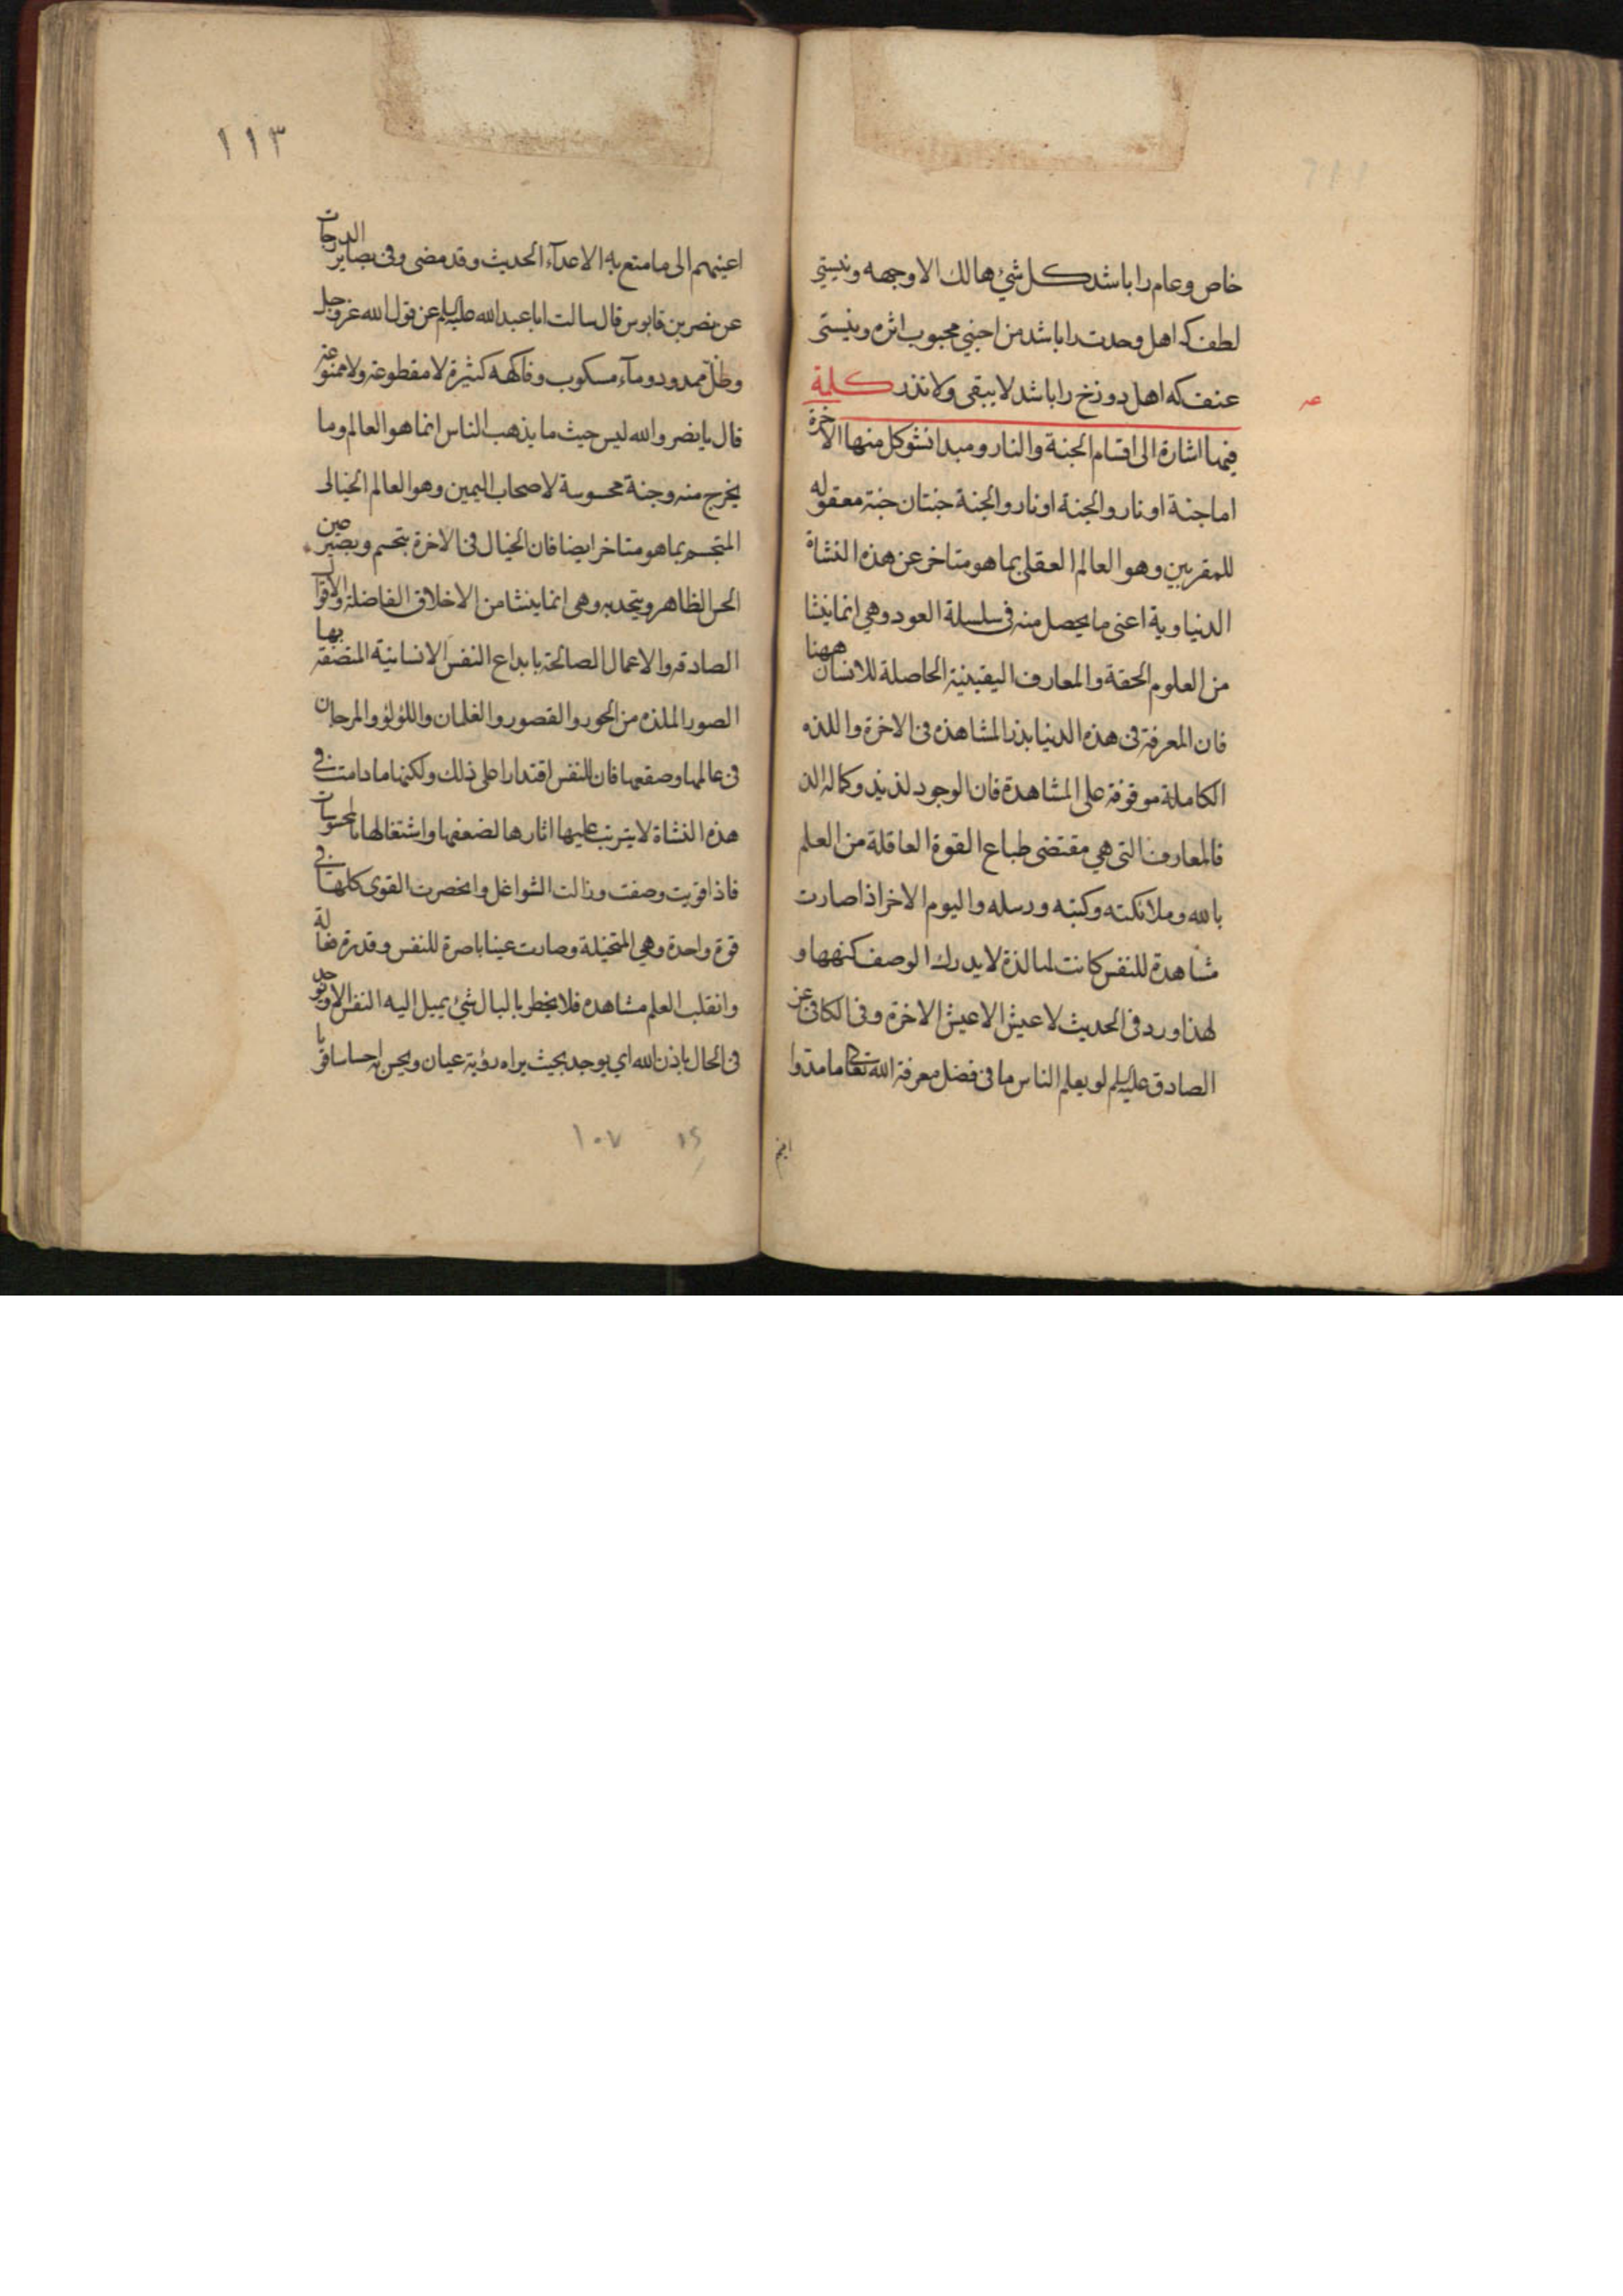 خاص و عام را باشد كل شئ هالك الا وجهه و نيستي
لطف كه اهل وحدت را باشد من احبني محبوب اثره و نيستى
عنف كه اهل دوزخ را باشد لا يبقى ولا تذر كلمة
فيها اشارة الى اقسام الجنة والنار و مبدا نشو كل منها الاخرة
اما جنة او نار والجنة او نار والجنة جنتان جنة معقوله
للمقربين وهو العالم العقلى بما هو متاخر عن هذه النشاة
الدنياوية اعنى ما يحصل منه فى سلسلة العود وهي انما ينشا
من العلوم الحقة والمعارف اليقينية الحاصلة للانسان ههنا
فان المعرفة فى هذه الدنيا بذر المشاهده فى الاخرة واللذه
الكاملة موقوفة على المشاهدة فان الوجود لذيذ وكماله الذ
فالمعارف التى هي مقتضى طباع القوة العاقلة من العلم
بالله وملائكته وكتبه ورسله واليوم الاخر اذا صارت
مشاهدة للنفس كانت لها لذة لا يدرك الوصف كنهها و
لهذا ورد فى الحديث لا عيش الا عيش الاخرة وفى الكافى عن
الصادق عليه السلم لو يعلم الناس ما فى فضل معرفة الله تعالى ما مدوا
١١٣
اعينهم الى ما متع به الاعدآء الحديث وقد مضى وفى بصاير الدرجات
عن نصر بن قابوس قال سالت ابا عبد الله عليه السلم عن قول الله عز وجل
وظل ممدود ومآء مسكوب وفاكهه كثيرة لا مقطوعة ولا ممنوعة
قال يا نصر والله ليس حيث ما يذهب الناس انما هو العالم وما
يخرج منه وجنة محسوسة لاصحاب اليمين وهو العالم الخيالى
المتجسم بما هو متاخر ايضا فان الخيال فى الاخرة يتجسم ويصير عين
الحس الظاهر ويتحد به وهى انما ينشا من الاخلاق الفاضلة والاقوال
الصادقه والاعمال الصالحة بابداع النفس الانسانية المتصفة بها
الصور الملذه من الحور والقصور والغلمان واللؤلؤ والمرجان
فى عالمها وصقعها فان للنفس اقتدارا على ذلك ولكنها ما دامت فى
هذه النشاة لا يترتب عليها اثارها لضعفها واشتغالها بالمحسوسات
فاذا قويت وصفت وزالت الشواغل وانحصرت القوى كلها فى
قوة واحدة وهي المتخيلة وصارت عينا باصرة للنفس وقدرة فعالة
وانقلب العلم مشاهده فلا يخطر بالبال شئ يميل اليه النفس الا ويوجد
فى الحال باذن الله اي يوجد بحيث يراه رؤية عيان ويحس به احساسا قويا
١٠٧